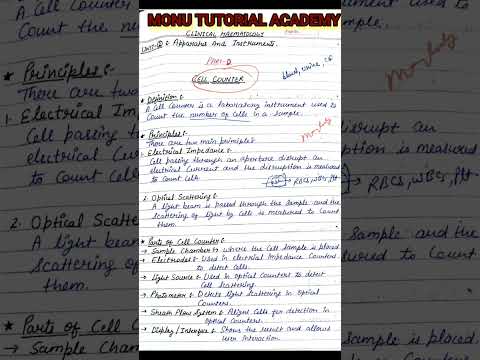 MONU TUTORIAL ACADEMY
CLINICAL HAEMATOLOGY
Unit-② :- Apparatus And Instruments.
Part-D
CELL COUNTER
blood, urine, CSF
★ Definition :-
A Cell Counter is a laboratory instrument used to
Count the number of cells in a sample.
★ Principles :-
There are two main principles
1. Electrical Impedance :-
Cell passing through an aperture disrupt an
electrical Current and the disruption is measured
to Count cell.
→ RBCs, WBCs, Plt
2. Optical Scattering :-
A light beam is passed through the sample and the
scattering of light by cells is measured to Count
them.
★ Parts of Cell Counter :-
→ Sample Chamber :- where the Cell sample is placed
→ Electrodes :- Used in electrical Impedance Counters
to detect cells.
→ Light Source :- Used in optical Counters to detect
Cell scattering.
→ Photometer :- Detects light scattering in optical
Counters.
→ Sheath Flow System :- Aligns Cells for detection in
optical Counters.
→ Display/Interface :- Shows the result and allows
user interaction.
A Cell Counter
Count the num
★ Principles :-
There are two
1. Electrical Imp
Cell passing
electrical Cu
to Count cell
2. Optical Scatte
A light beam
scattering of
them.
★ Parts of Cell
→ Sample Cham
disrupt an
is measured
→ RBCs, WBCs, Plt
and the
to Count
is placed